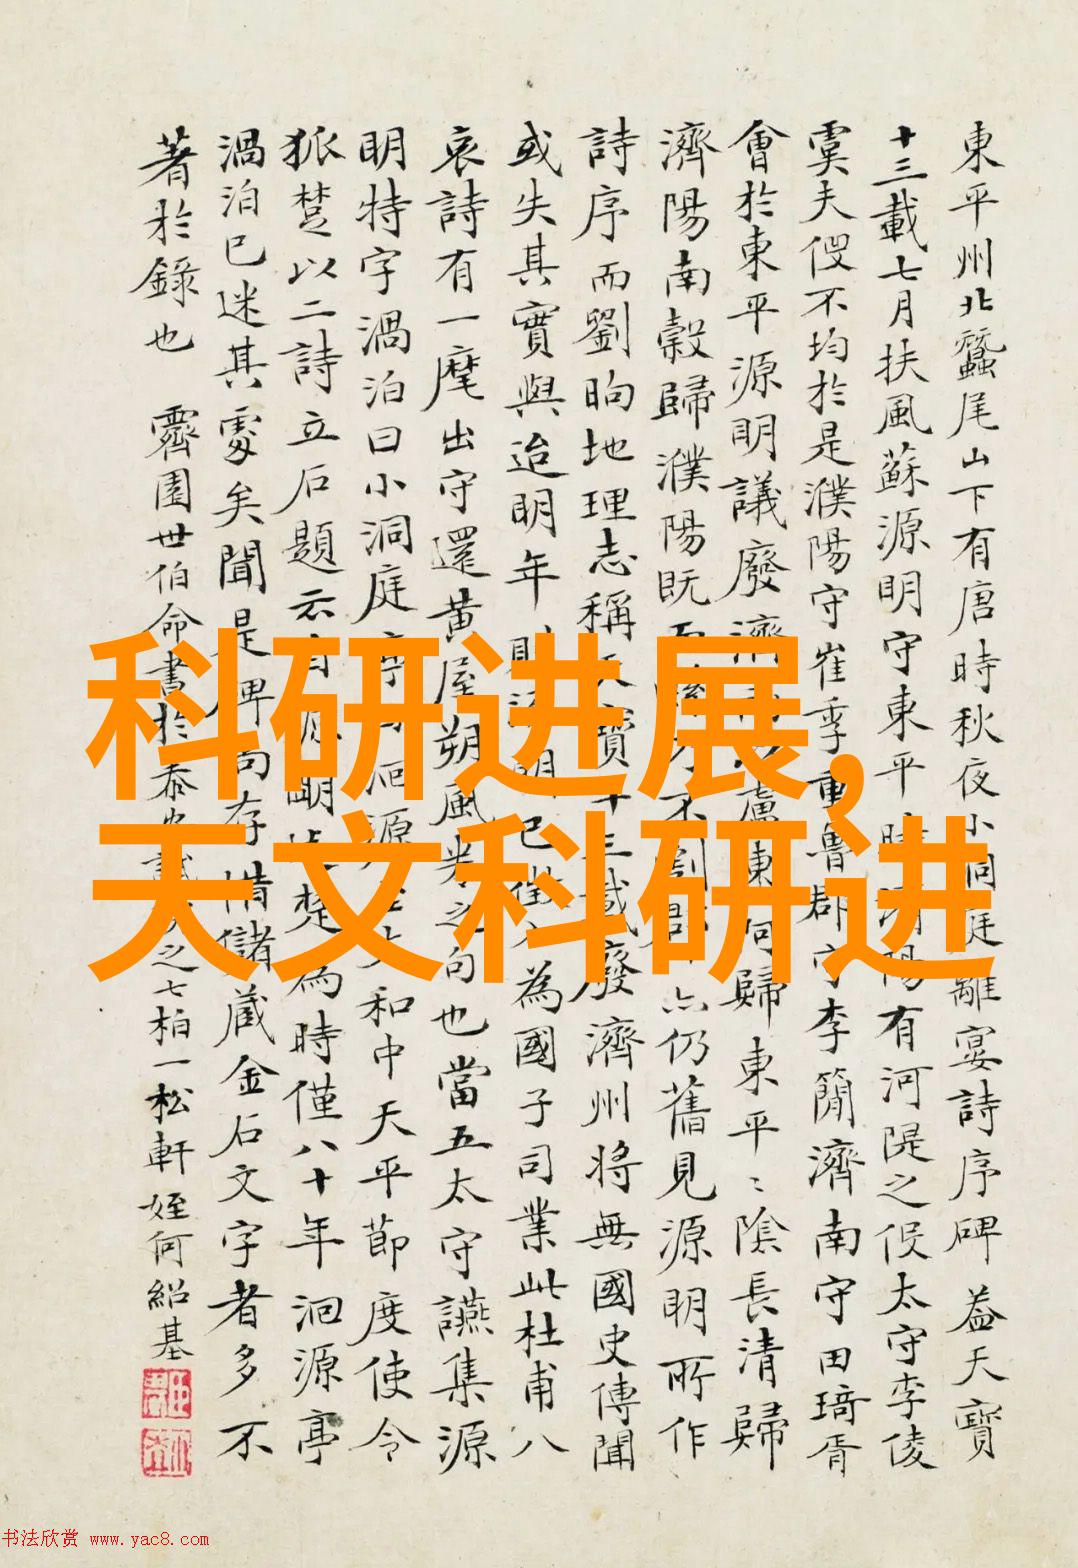 科研进展,
天文科研进
東平州北蠶尾山下有唐時秋夜小洞庭離宴詩序碑 蓋天寶
十三載七月扶風蘇源明守東平 陽有河隄之役太守李倰
虞夫役不均於是濮陽守崔季重魯郡守李簡濟南守田琦胥
會於東平源明議廢濟 盧東阿歸東平〻陰長清歸
濟陽南穀歸濮陽既而 不割 亦仍舊見源明所作
詩序而劉昫地理志稱天寶十三載廢濟州將無國史傳聞
或失其實與迨明年 源明已徵入為國子司業此杜甫八
哀詩有一麾出守還黃屋朔風卷之句也當五太守讌集源
明特字渦泊曰小洞庭 洄源 太和中天平節度使令
狐楚以二詩立石題云 源明 楚為時僅八十年洄源亭
渦泊已迷其處矣聞是碑尚存惜儲藏金石文字者多不
著於錄也 霽園世伯命書於泰 之七柏一松軒 姪何紹基
书法欣赏 www.yac8.com